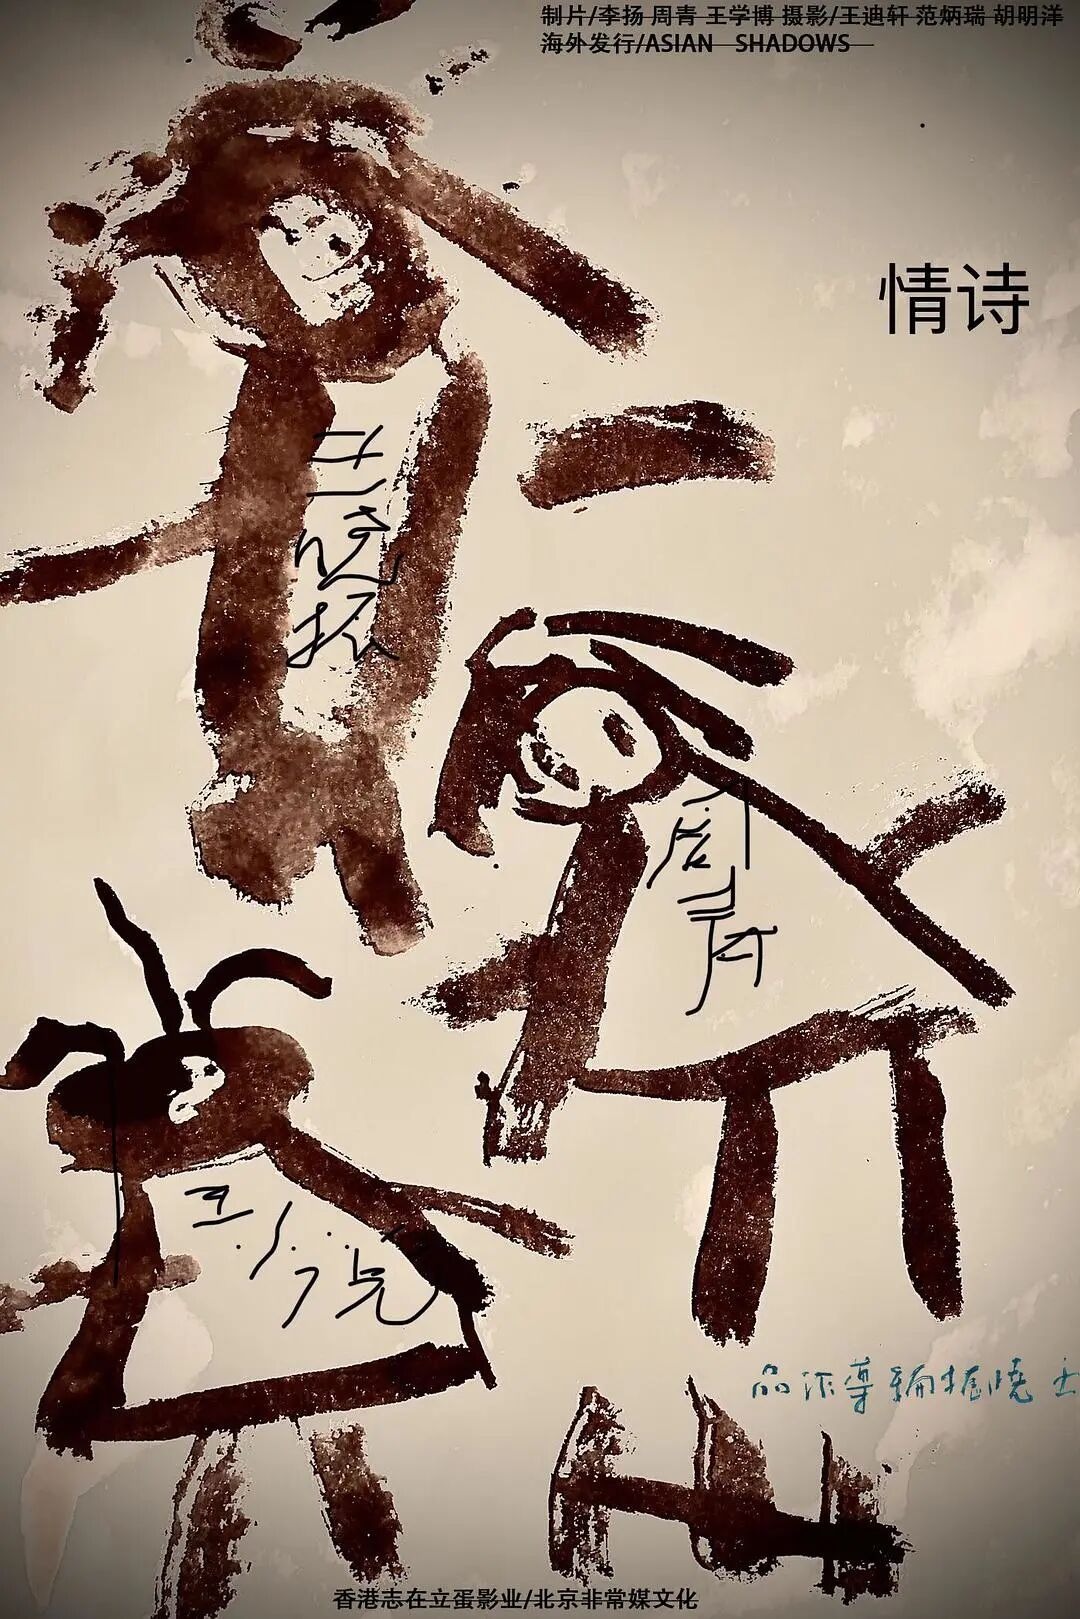 制片/李扬 周青 王学博 摄影/王迪轩 范炳瑞 胡明洋
海外发行/ASIAN SHADOWS
情诗
王晓振
周青
品作導編振曉王
香港志在立蛋影业/北京非常媒文化